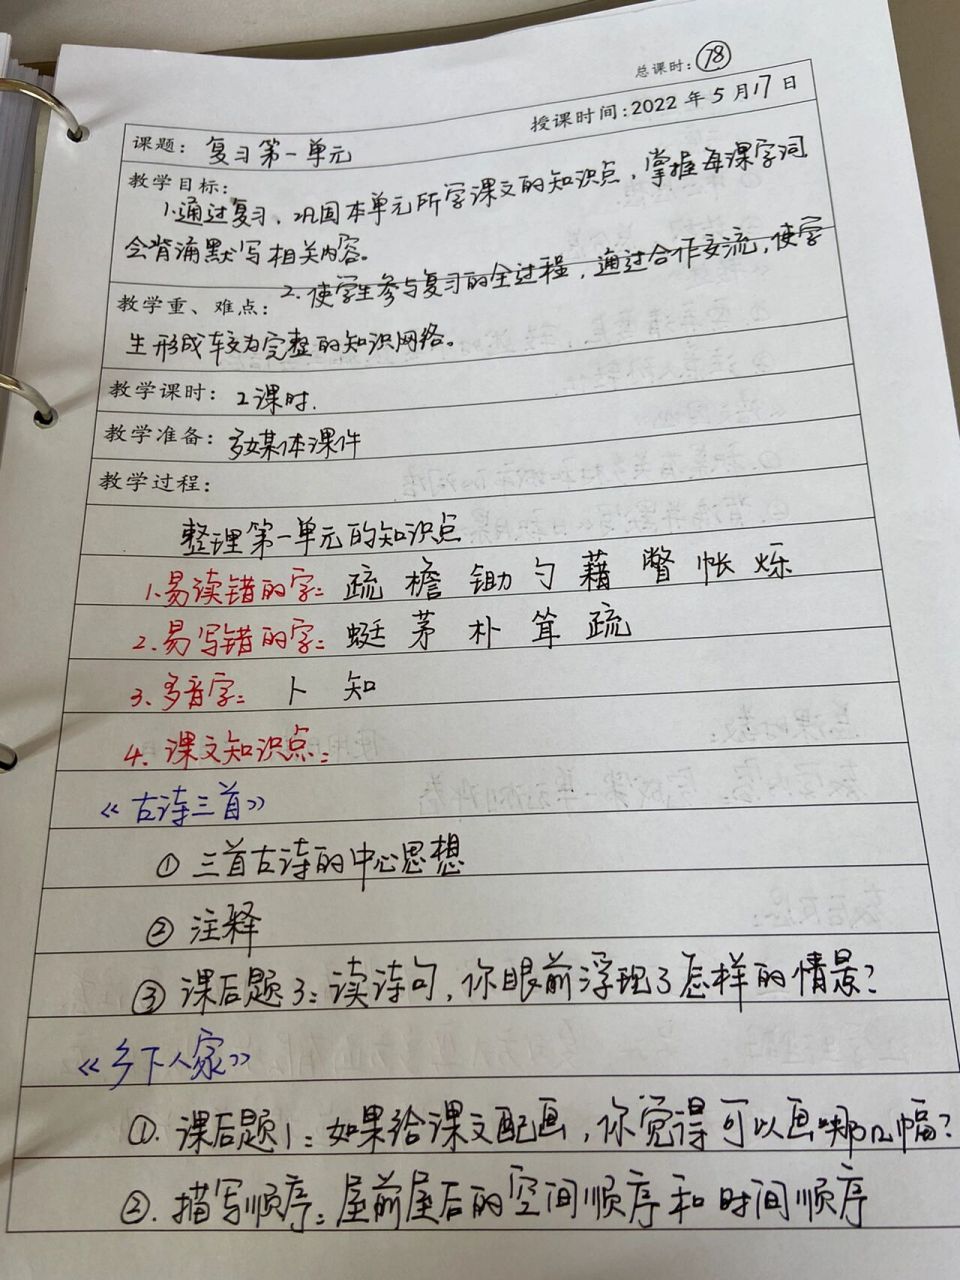 总课时：78
授课时间：2022年5月17日
课题：复习第一单元
教学目标：
1.通过复习，巩固本单元所学课文的知识点，掌握每课字词
会背诵默写相关内容。
2.使学生参与复习的全过程，通过合作交流，使学
教学重、难点：
生形成较为完整的知识网络。
教学课时：2课时.
教学准备：多媒体课件
教学过程：
整理第一单元的知识点
1.易读错的字：疏 檐 锄 勺 藉 瞥 帐 烁
2.易写错的字：蜓 茅 朴 茸 疏
3.多音字：卜 知
4.课文知识点：
《古诗三首》
① 三首古诗的中心思想
② 注释
③ 课后题3：读诗句，你眼前浮现了怎样的情景？
《乡下人家》
①.课后题1：如果给课文配画，你觉得可以画哪几幅？
②.描写顺序：屋前屋后的空间顺序和时间顺序